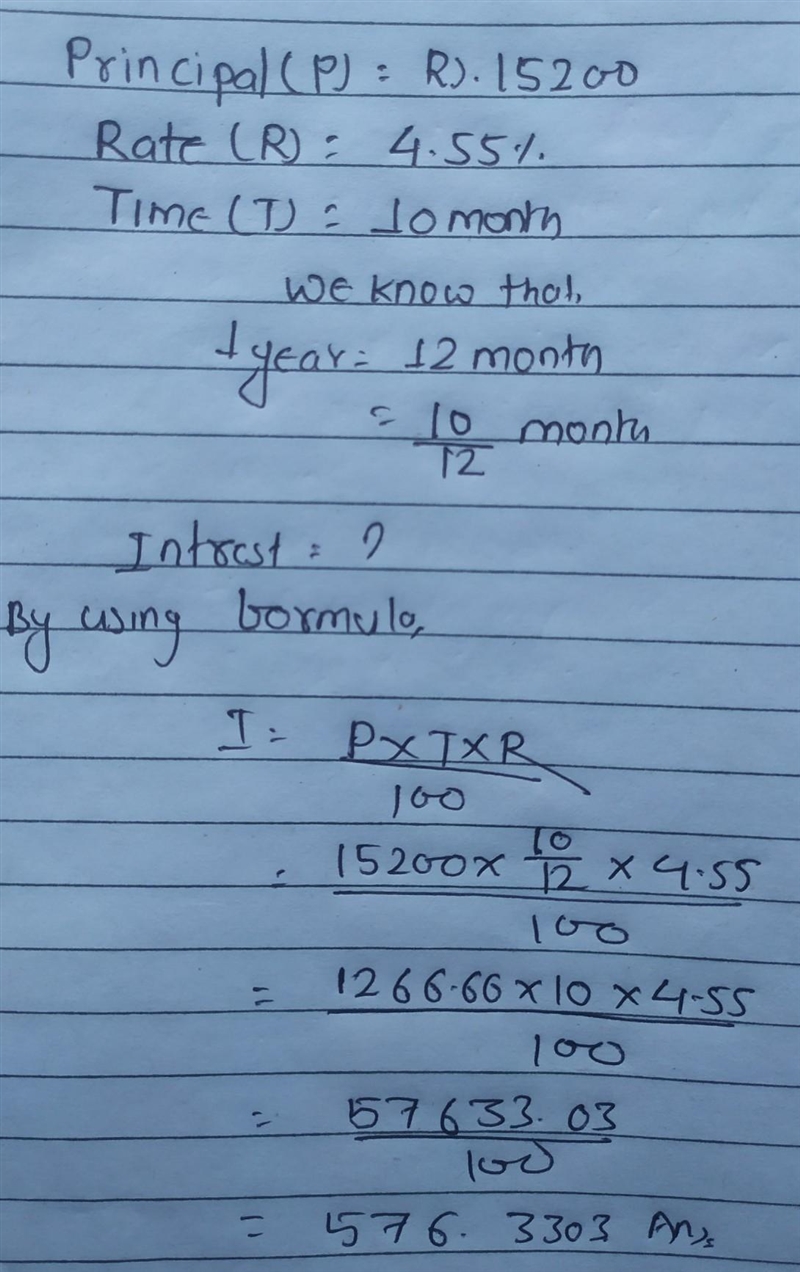 Principal(P) = Rs. 15200
Rate (R) = 4.55%.
Time (T) = 10 month
we know that,
1 year = 12 month
= 10/12 month
Intrest = ?
By using formula,
I = P×T×R
100
= 15200 × 10/12 × 4.55
100
= 1266.66 × 10 × 4.55
100
= 57633.03
100
= 576.3303 Ans